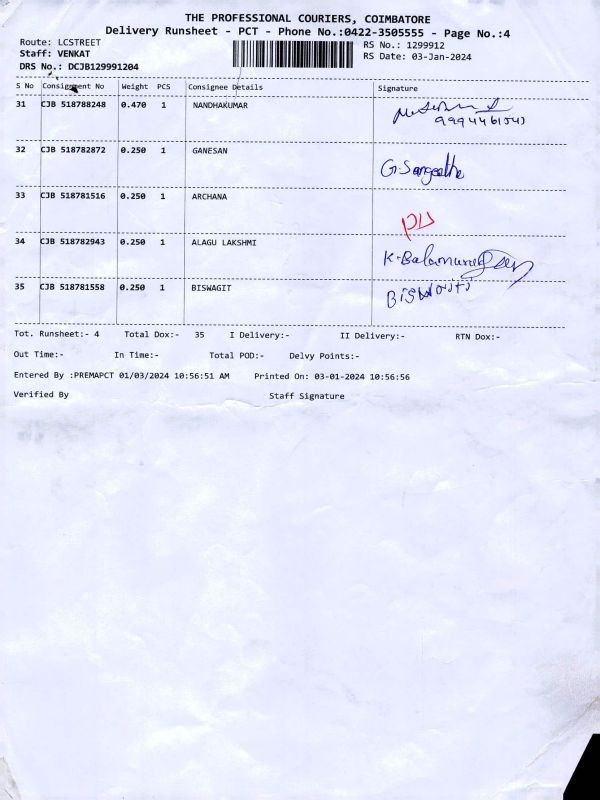 THE PROFESSIONAL COURIERS, COIMBATORE
Delivery Runsheet - PCT - Phone No.:0422-3505555 - Page No.:4
Route: LCSTREET
RS No.: 1299912
Staff: VENKAT
RS Date: 03-Jan-2024
DRS No.: DCJB129991204
S No Consignment No Weight PCS Consignee Details Signature
31 CJB 518788248 0.470 1 NANDHAKUMAR
32 CJB 518782872 0.250 1 GANESAN G. Sangeetha
33 CJB 518781516 0.250 1 ARCHANA
34 CJB 518782943 0.250 1 ALAGU LAKSHMI
35 CJB 518781558 0.250 1 BISWAGIT
Tot. Runsheet:- 4 Total Dox:- 35 I Delivery:- II Delivery:- RTN Dox:-
Out Time:- In Time:- Total POD:- Delvy Points:-
Entered By :PREMAPCT 01/03/2024 10:56:51 AM Printed On: 03-01-2024 10:56:56
Verified By Staff Signature